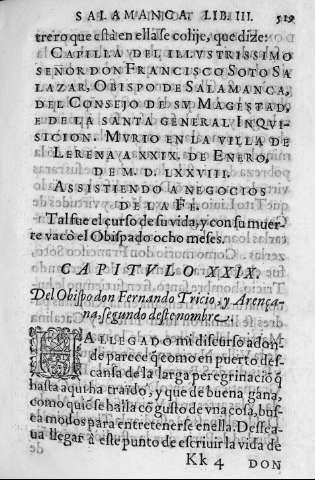 SALAMANCA LIB. III. 519
trero que està en ella se colije, que dize:
CAPILLA DEL ILLVSTRISSIMO
SEÑOR DON FRANCISCO SOTO SA
LAZAR, OBISPO DE SALAMANCA,
DEL CONSEJO DE SV MAGESTAD,
E DE LA SANTA GENERAL INQVI-
SICION. MVRIO EN LA VILLA DE
LERENA A XXIX. DE ENERO,
DE M. D. LXXVIII.
ASSISTIENDO A NEGOCIOS
DE LA FE.
Tal fue el curso de su vida, y con su muer
te vacò el Obispado ocho meses.
CAPITVLO XXIX.
Del Obispo don Fernando Tricio, y Arença-
na, segundo deste nombre.
HA LLEGADO mi discurso adon-
de parece q̃ como en puerto des-
cansa de la larga peregrinaciõ q̃
hasta aqui ha traido, y que de buena gana,
como quiẽ se halla cõ gusto de vna cosa, bus-
ca modos para entretenerse en ella. Dessea-
ua llegar à este punto de escriuir la vida de
Kk 4 DON